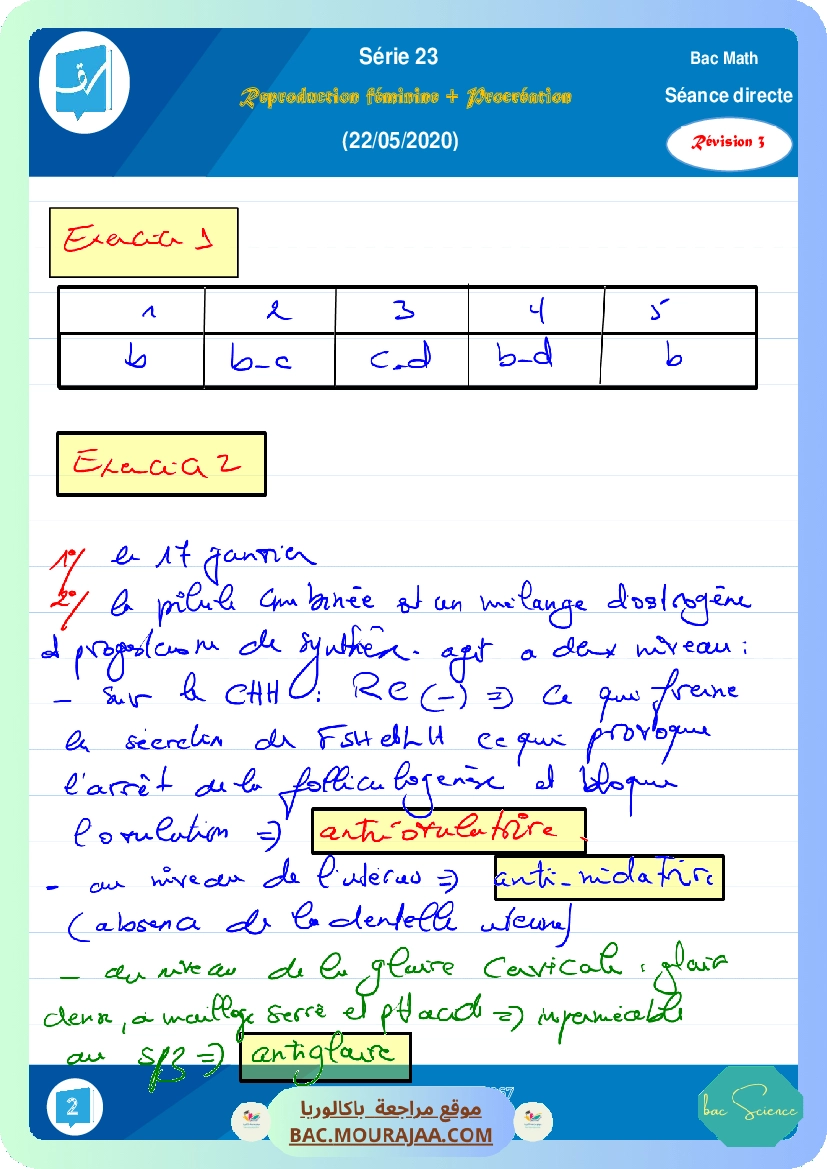 Série 23
Bac Math
Reproduction féminine + Procréation
Séance directe
(22/05/2020)
Révision 3
Exercice 1
1 2 3 4 5
b b-c c-d b-d b
Exercice 2
1°/ le 17 janvier
2°/ la pilule combinée est un mélange d'oestrogène
et progestérone de synthèse. agit a deux niveau :
- Sur le CHH : RC (-) => ce qui freine
la sécretion de FSH et LH ce qui provoque
l'arrêt de la folliculogenèse et bloque
l'ovulation => anti-ovulatoire.
- au niveau de l'utérus => anti-nidatoire
(absence de la dentelle utérine)
- au niveau de la glaire cervicale : glaire
dense, a maillage serré et pH acide => imperméable
au spz => antiglaire
2
موقع مراجعة باكالوريا
BAC.MOURAJAA.COM
bac Science